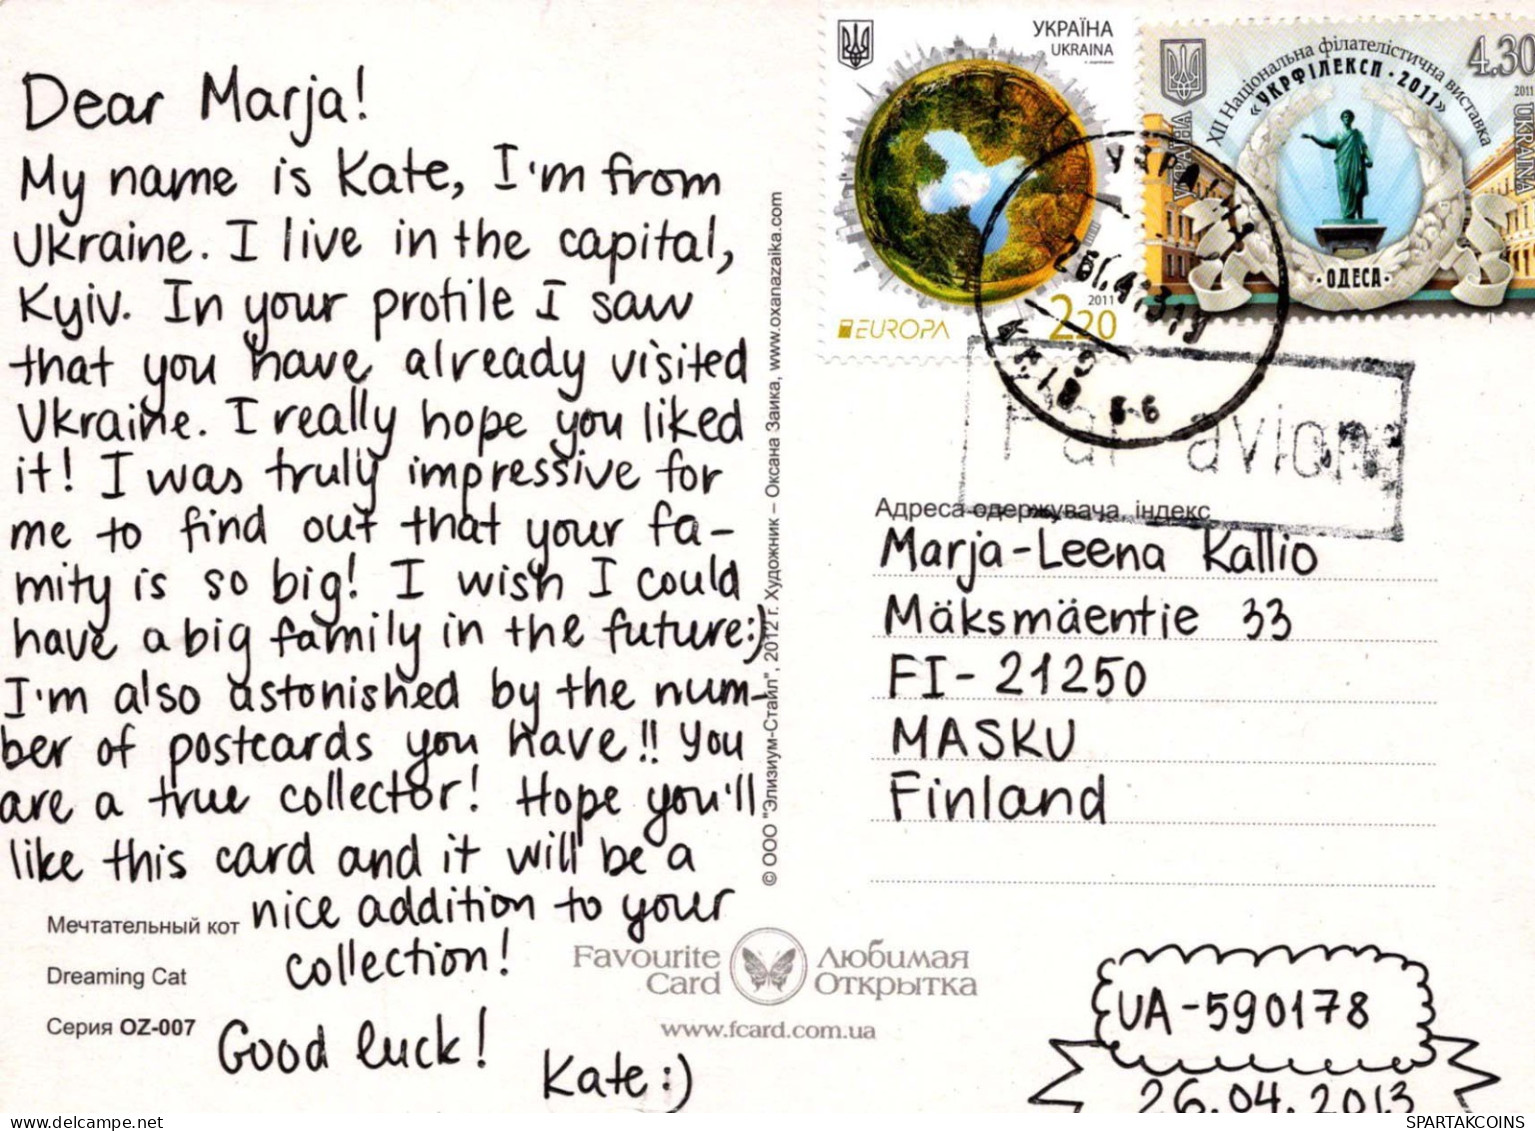 Dear Marja!
My name is Kate, I'm from
Ukraine. I live in the capital,
Kyiv. In your profile I saw
that you have already visited
Ukraine. I really hope you liked
it! I was truly impressive for
me to find out that your fa-
mity is so big! I wish I could
have a big family in the future:)
I'm also astonished by the num-
ber of postcards you have!! You
are a true collector! Hope you'll
like this card and it will be a
nice addition to your
collection!
Good luck!
Kate:)
Мечтательный кот
Dreaming Cat
Серия OZ-007
© ООО "Элизиум-Стайл", 2012 г. Художник – Оксана Заика, www.oxanazaika.com
Favourite Card
Любимая Открытка
www.fcard.com.ua
УКРАЇНА
UKRAINA
2011
2.20
EUROPA
XII Національна філателістична виставка
«УКРФІЛЕКСП · 2011»
4.30
2011
УКРАЇНА
UKRAINA
· ОДЕСА ·
Par avion
Адреса одержувача, індекс
Marja-Leena Kallio
Mäksmäentie 33
FI-21250
MASKU
Finland
UA-590178
26.04.2013
www.delcampe.net
SPARTAKCOINS